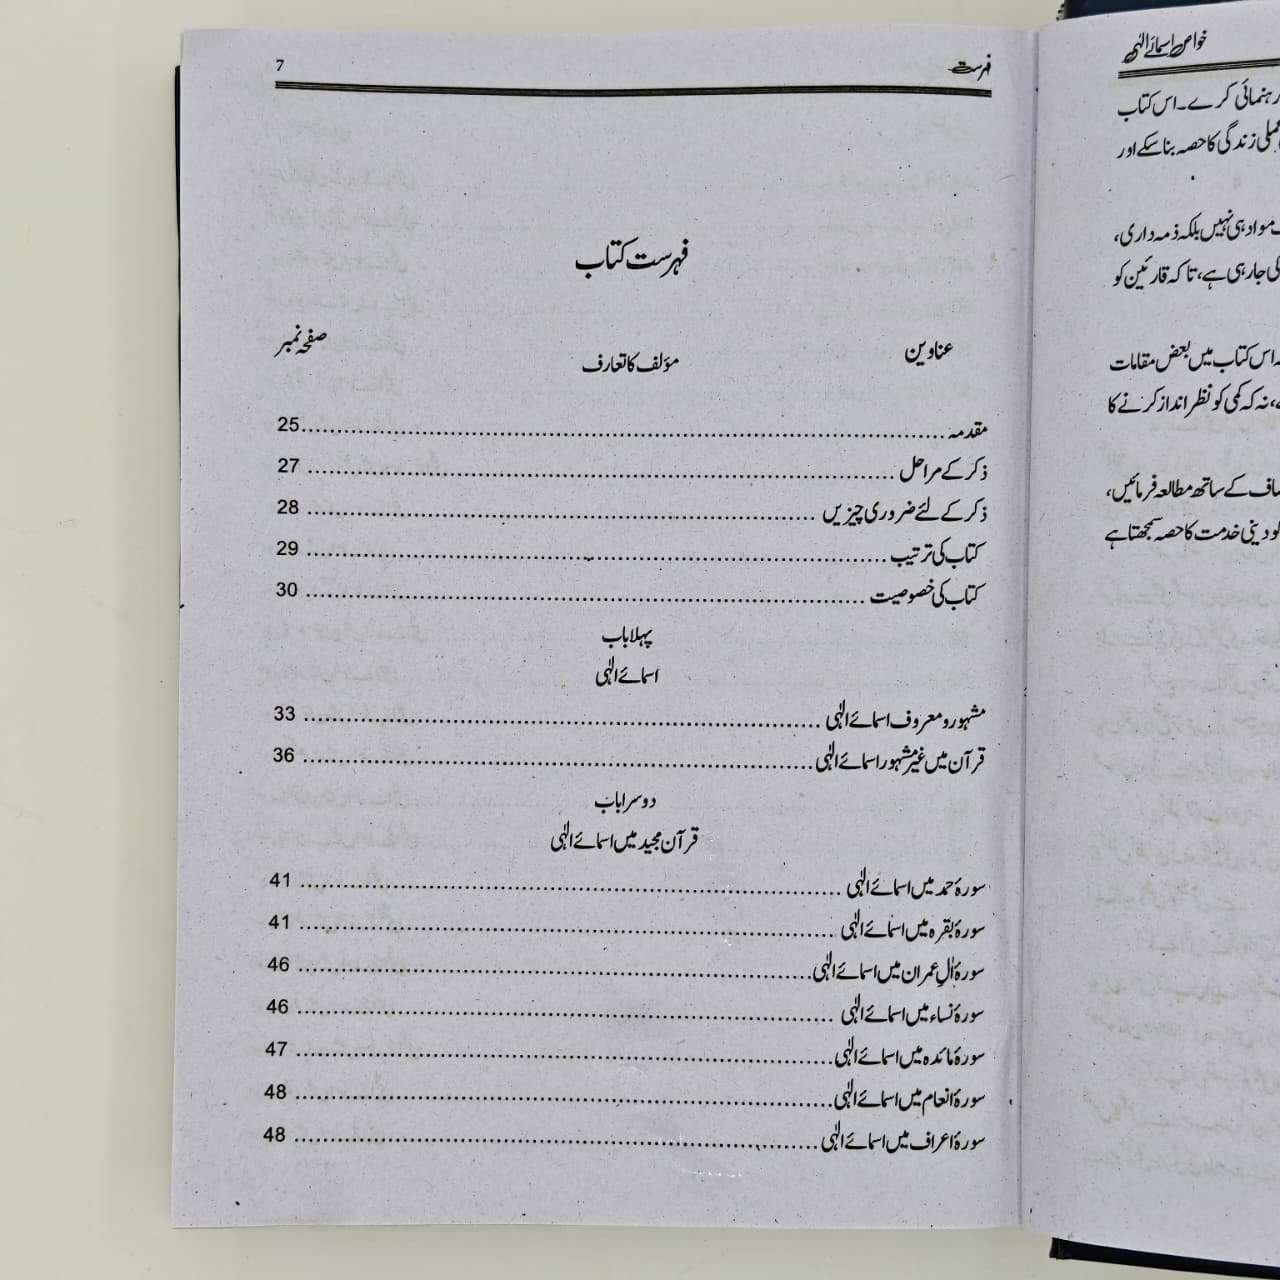 فہرست 7
فہرست کتاب
عناوین صفحہ نمبر
مؤلف کا تعارف
مقدمہ ........ 25
ذکر کے مراحل ........ 27
ذکر کے لئے ضروری چیزیں ........ 28
کتاب کی ترتیب ........ 29
کتاب کی خصوصیت ........ 30
پہلا باب
اسمائے الٰہی
مشہور و معروف اسمائے الٰہی ........ 33
قرآن میں غیر مشہور اسمائے الٰہی ........ 36
دوسرا باب
قرآن مجید میں اسمائے الٰہی
سورۂ حمد میں اسمائے الٰہی ........ 41
سورۂ بقرہ میں اسمائے الٰہی ........ 41
سورۂ اٰلِ عمران میں اسمائے الٰہی ........ 46
سورۂ نساء میں اسمائے الٰہی ........ 46
سورۂ مائدہ میں اسمائے الٰہی ........ 47
سورۂ انعام میں اسمائے الٰہی ........ 48
سورۂ اعراف میں اسمائے الٰہی ........ 48
خواص اسمائے الٰہی
رہنمائی کرے۔ اس کتاب
عملی زندگی کا حصہ بنا سکے اور
مواد ہی نہیں بلکہ ذمہ داری،
کی جا رہی ہے، تاکہ قارئین کو
اس کتاب میں بعض مقامات
نہ کہ کمی کو نظر انداز کرنے کا
کے ساتھ مطالعہ فرمائیں،
کو دینی خدمت کا حصہ سمجھتا ہے